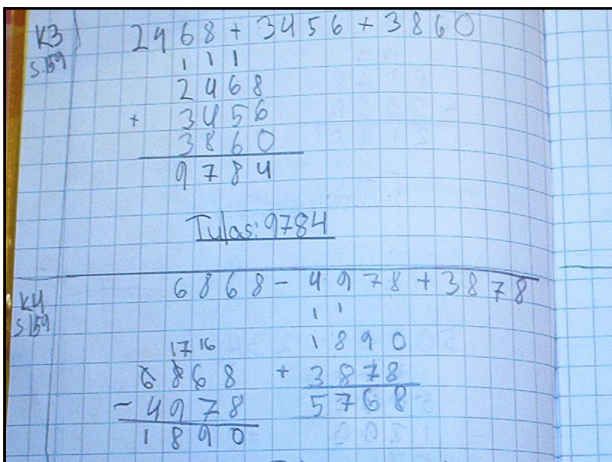 K3 2468 + 3456 + 3860
S.159
1 1 1
2468
+ 3456
3860
9784
Tulas: 9784
K4 6868 - 4978 + 3878
S.159
17 16
6868
- 4978
1890
1 1
1890
+ 3878
5768